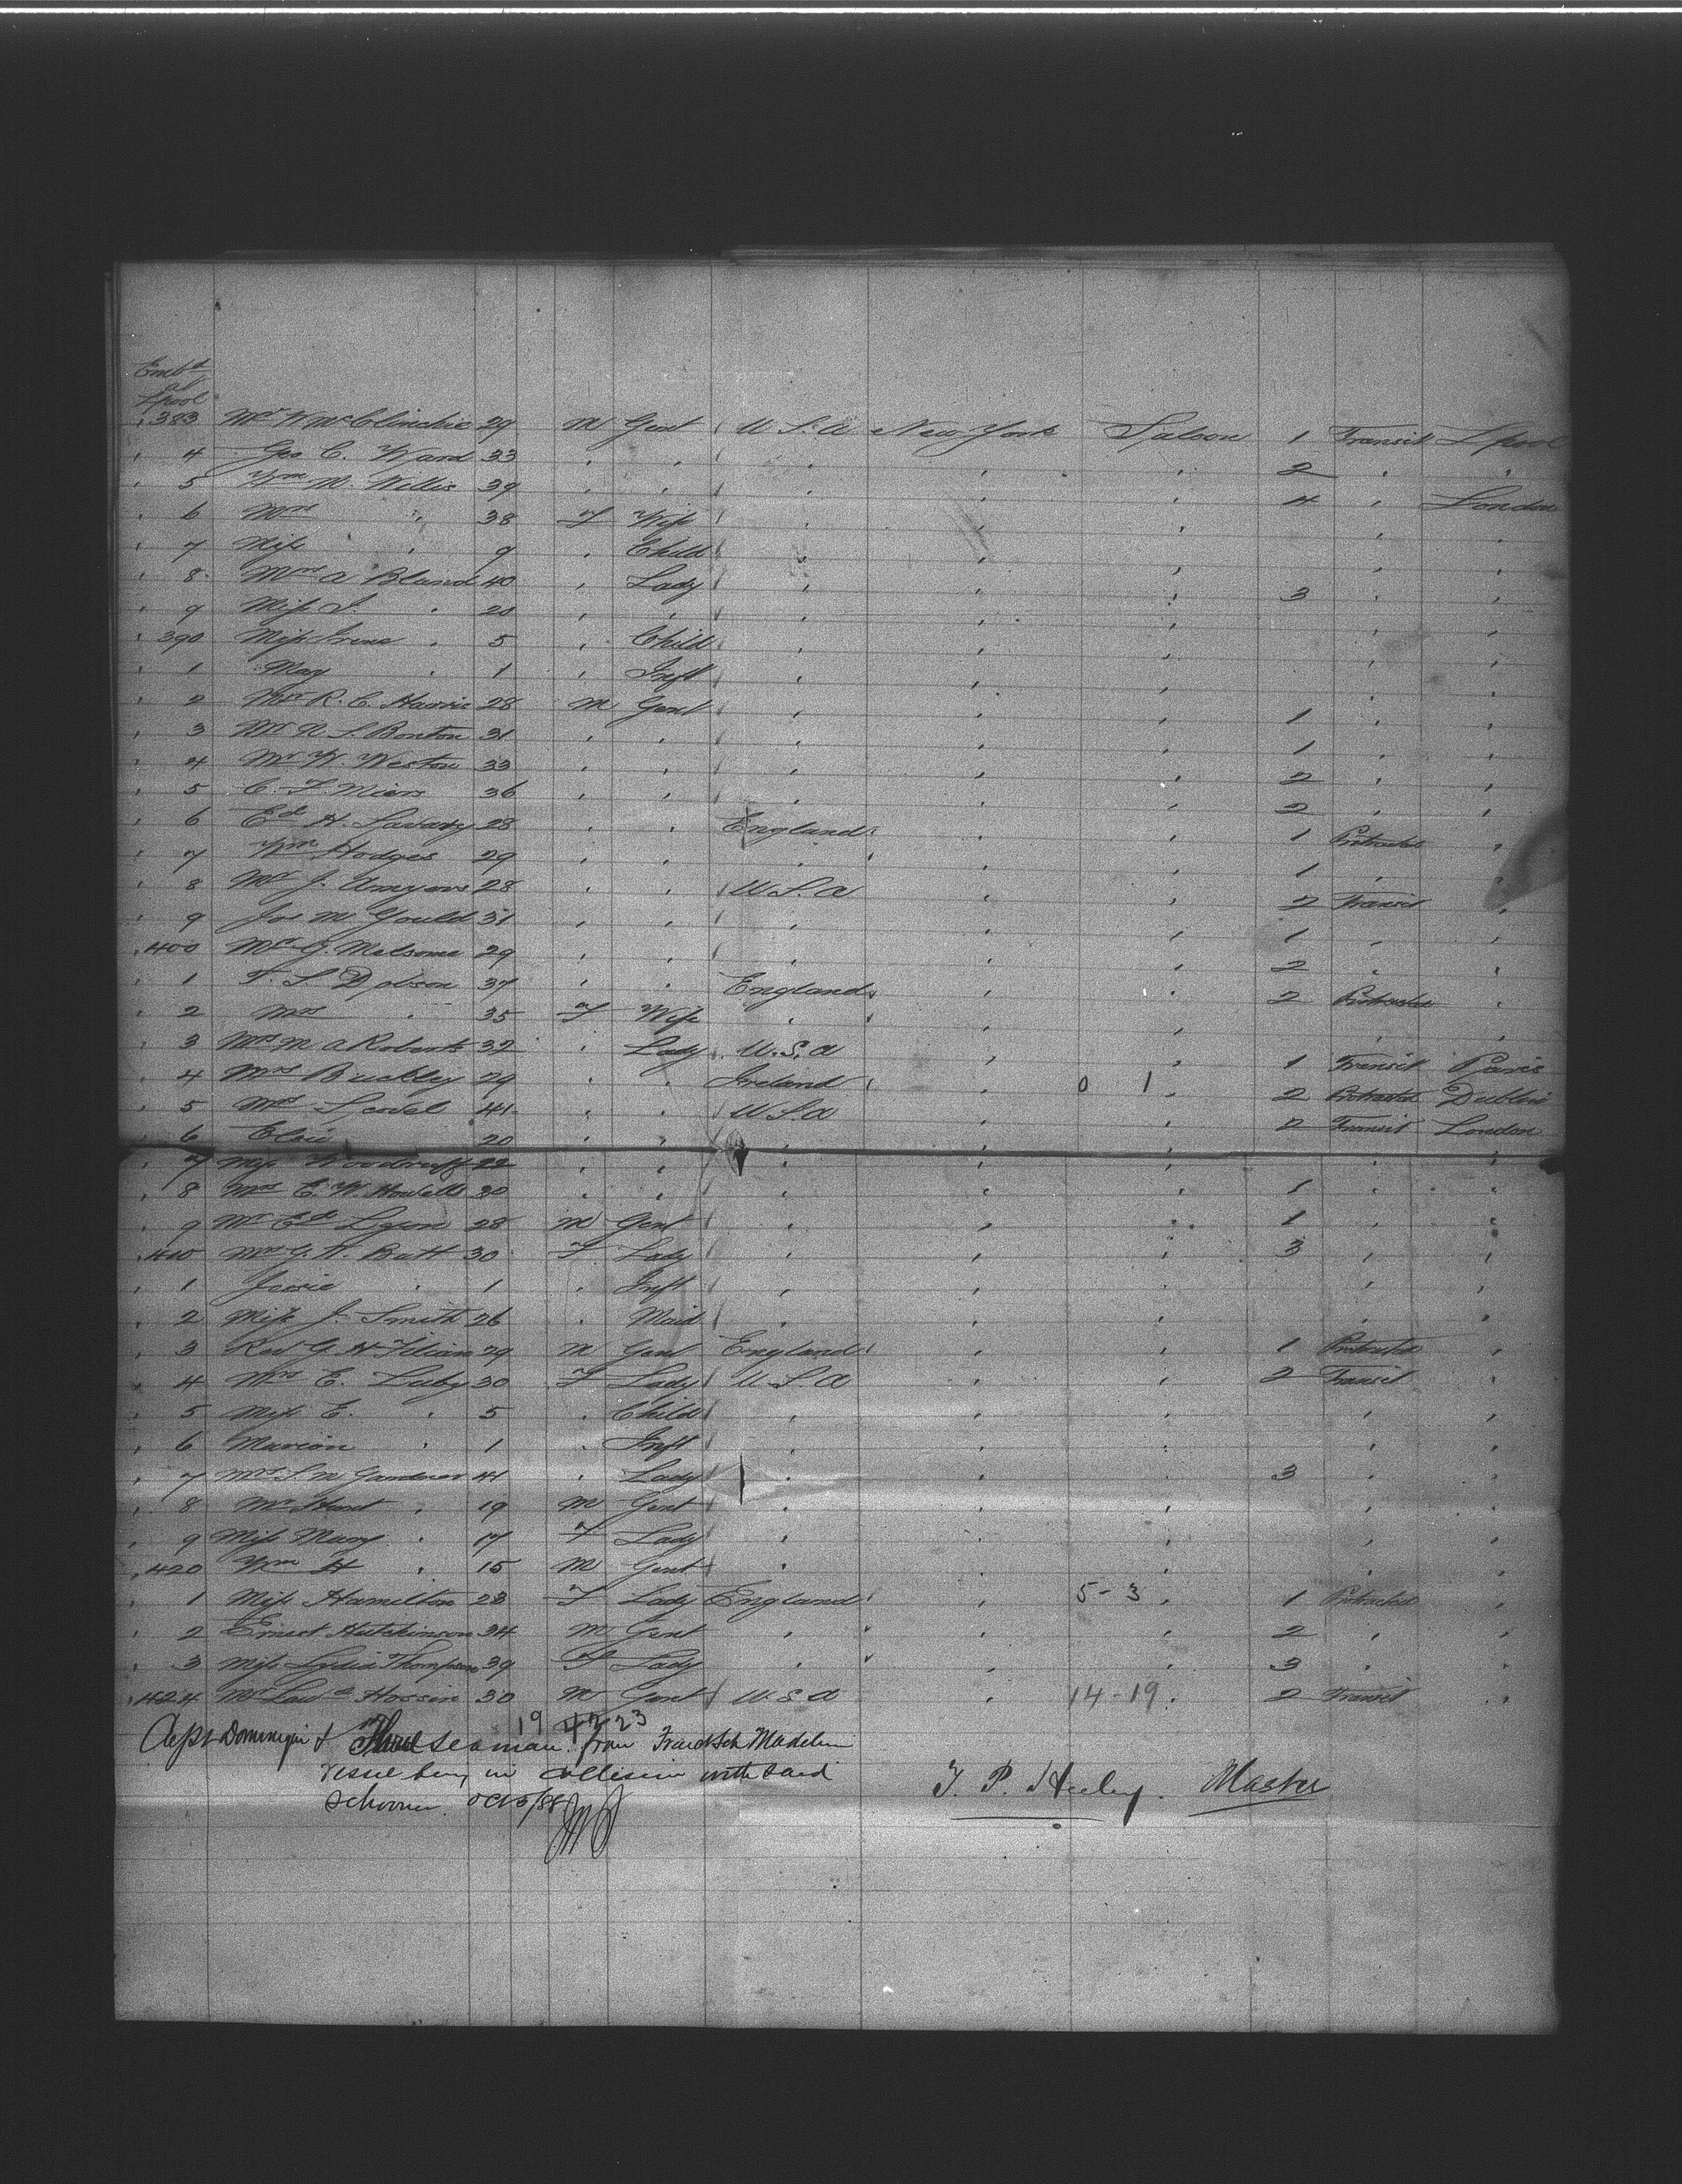 Embd
at
Lpool
383 Mr W McClinchie 29 M Gent U.S.A New York Saloon 1 Transit Lpool
4 Geo C. Ward 33 " " " " " 2 " "
5 Wm M. Willis 39 " " " " " 4 " London
6 Mrs " 38 F Wife " " " " "
7 Miss " 9 " Child " " " " "
8 Mrs A Bland 40 " Lady " " " 3 " "
9 Miss S. " 20 " " " " " " "
390 Miss Irene " 5 " Child " " " " "
1 May " 1 " Inft " " " " "
2 Mr R. C. Harris 28 M Gent " " " 1 " "
3 Mr N. S. Bonton 31 " " " " " 1 " "
4 Mr W. Weston 33 " " " " " 2 " "
5 C. F. Miers 36 " " " " " 2 " "
6 Ed H. 28 " " England " " 1 Protracted "
7 Wm Hodges 29 " " " " " 1 " "
8 Mr J. 28 " " U.S.A " " 2 Transit "
9 Jos M Gould 31 " " " " " 1 " "
400 Mr G. Melsome 29 " " " " " 2 " "
1 T. S. Dobson 37 " " England " " 2 Protracted "
2 Mrs " 35 F Wife " " " "
3 Mrs M A Roberts 32 " Lady U.S.A " " 1 Transit Paris
4 Mrs Buckley 29 " " Ireland " 0 1 " 2 Protracted Dublin
5 Mrs 41 " " U.S.A " " 2 Transit London
6 Elsie 20 " " " " " " "
7 Miss Woodruff 22 " " " " " " "
8 Mrs E. W. Howells 30 " " " " " 1 " "
9 Mr Ed Lyson 28 M Gent " " " 1 " "
410 Mrs G. A. Batt 30 F Lady " " " 3 " "
1 Josie " 1 " Inft " " " " "
2 Miss J. Smith 26 " Maid " " " " "
3 Rev G. H. 29 M Gent England " " 1 Protracted "
4 Mrs E. Luby 30 F Lady U.S.A " " 2 Transit "
5 Miss E. " 5 " Child " " " " "
6 Marion " 1 " Inft " " " " "
7 Mrs S. M Gardner 41 " Lady " " " 3 " "
8 Mr " 19 M Gent " " " " "
9 Miss Mary " 17 F Lady " " " " "
420 Wm H " 15 M Gent " " " " "
1 Miss Hamilton 23 F Lady England " 5-3 " 1 Protracted "
2 Ernest Hutchinson 34 M Gent " " " 2 " "
3 Miss Lydia Thompson 39 F Lady " " " 3 " "
424 Mr Lawce Hossin 30 M Gent U.S.A " 14-19 " 2 Transit "
19 42 23
Capt & Three seaman from Madelin
vessel being in collision with said
schooner. Oct 3/88
T. P. Heeley. Master